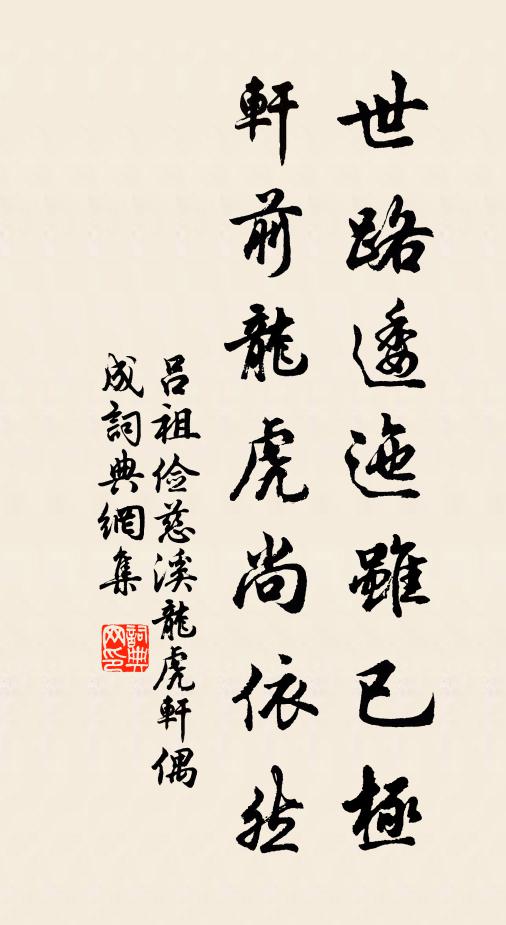 世路逶迤雖已極
軒前龍虎尚依然
呂祖儉慈溪龍虎軒偶
成詞典網集
詞典
网印